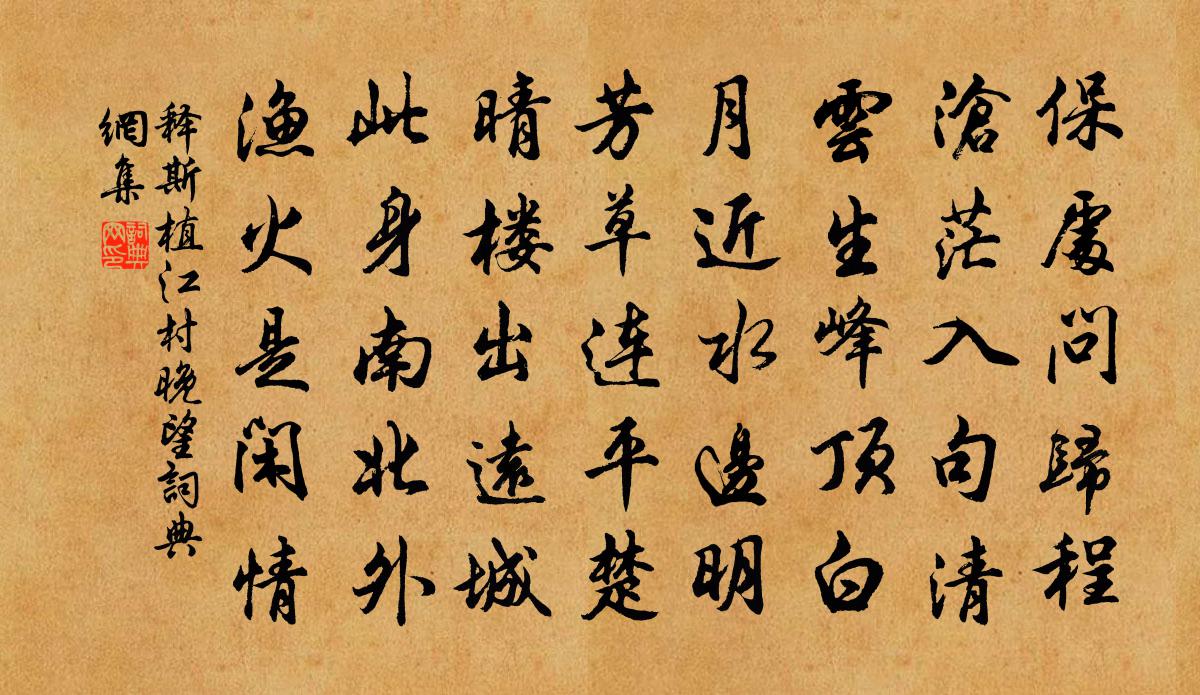 保處問歸程
滄茫入句清
雲生峰頂白
月近水邊明
芳草連平楚
晴楼出遠城
此身南北外
漁火是閑情
释斯植江村晚望詞典
網集
詞典
网印